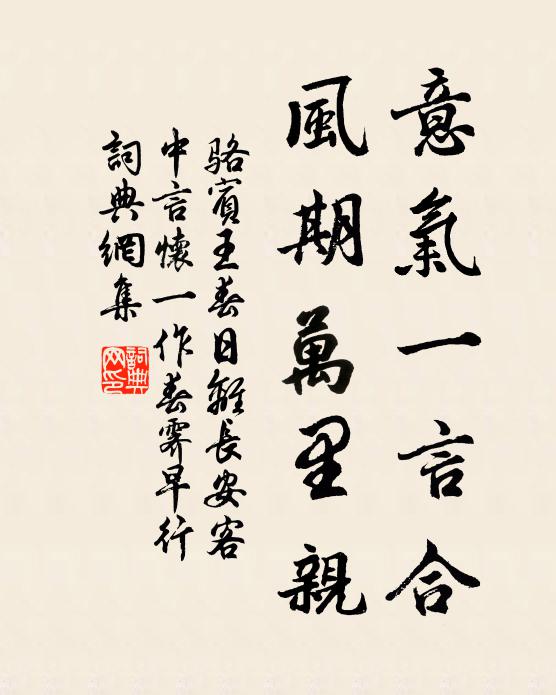 意氣一言合
風期萬里親
駱賓王春日離長安客
中言懷一作春霽早行
詞典網集
詞典
网印